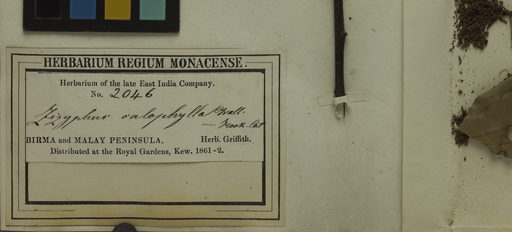 HERBARIUM REGIUM MONACENSE.
Herbarium of the late East India Company.
No. 2046
Zizyphus calophylla Wall.
BIRMA and MALAY PENINSULA. Herb. Griffith.
Distributed at the Royal Gardens, Kew. 1861-2.